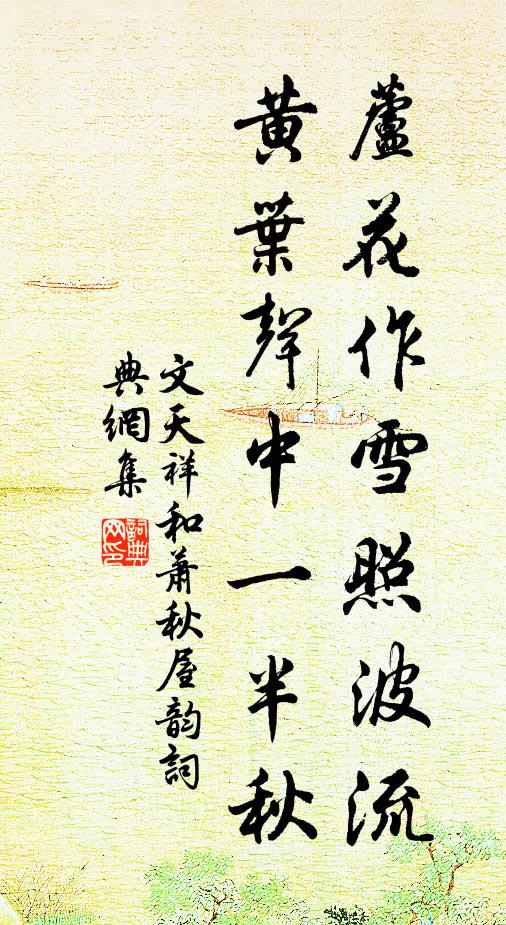 蘆花作雪照波流
黃葉聲中一半秋
文天祥和蕭秋屋韵詞
典網集
詞典網印